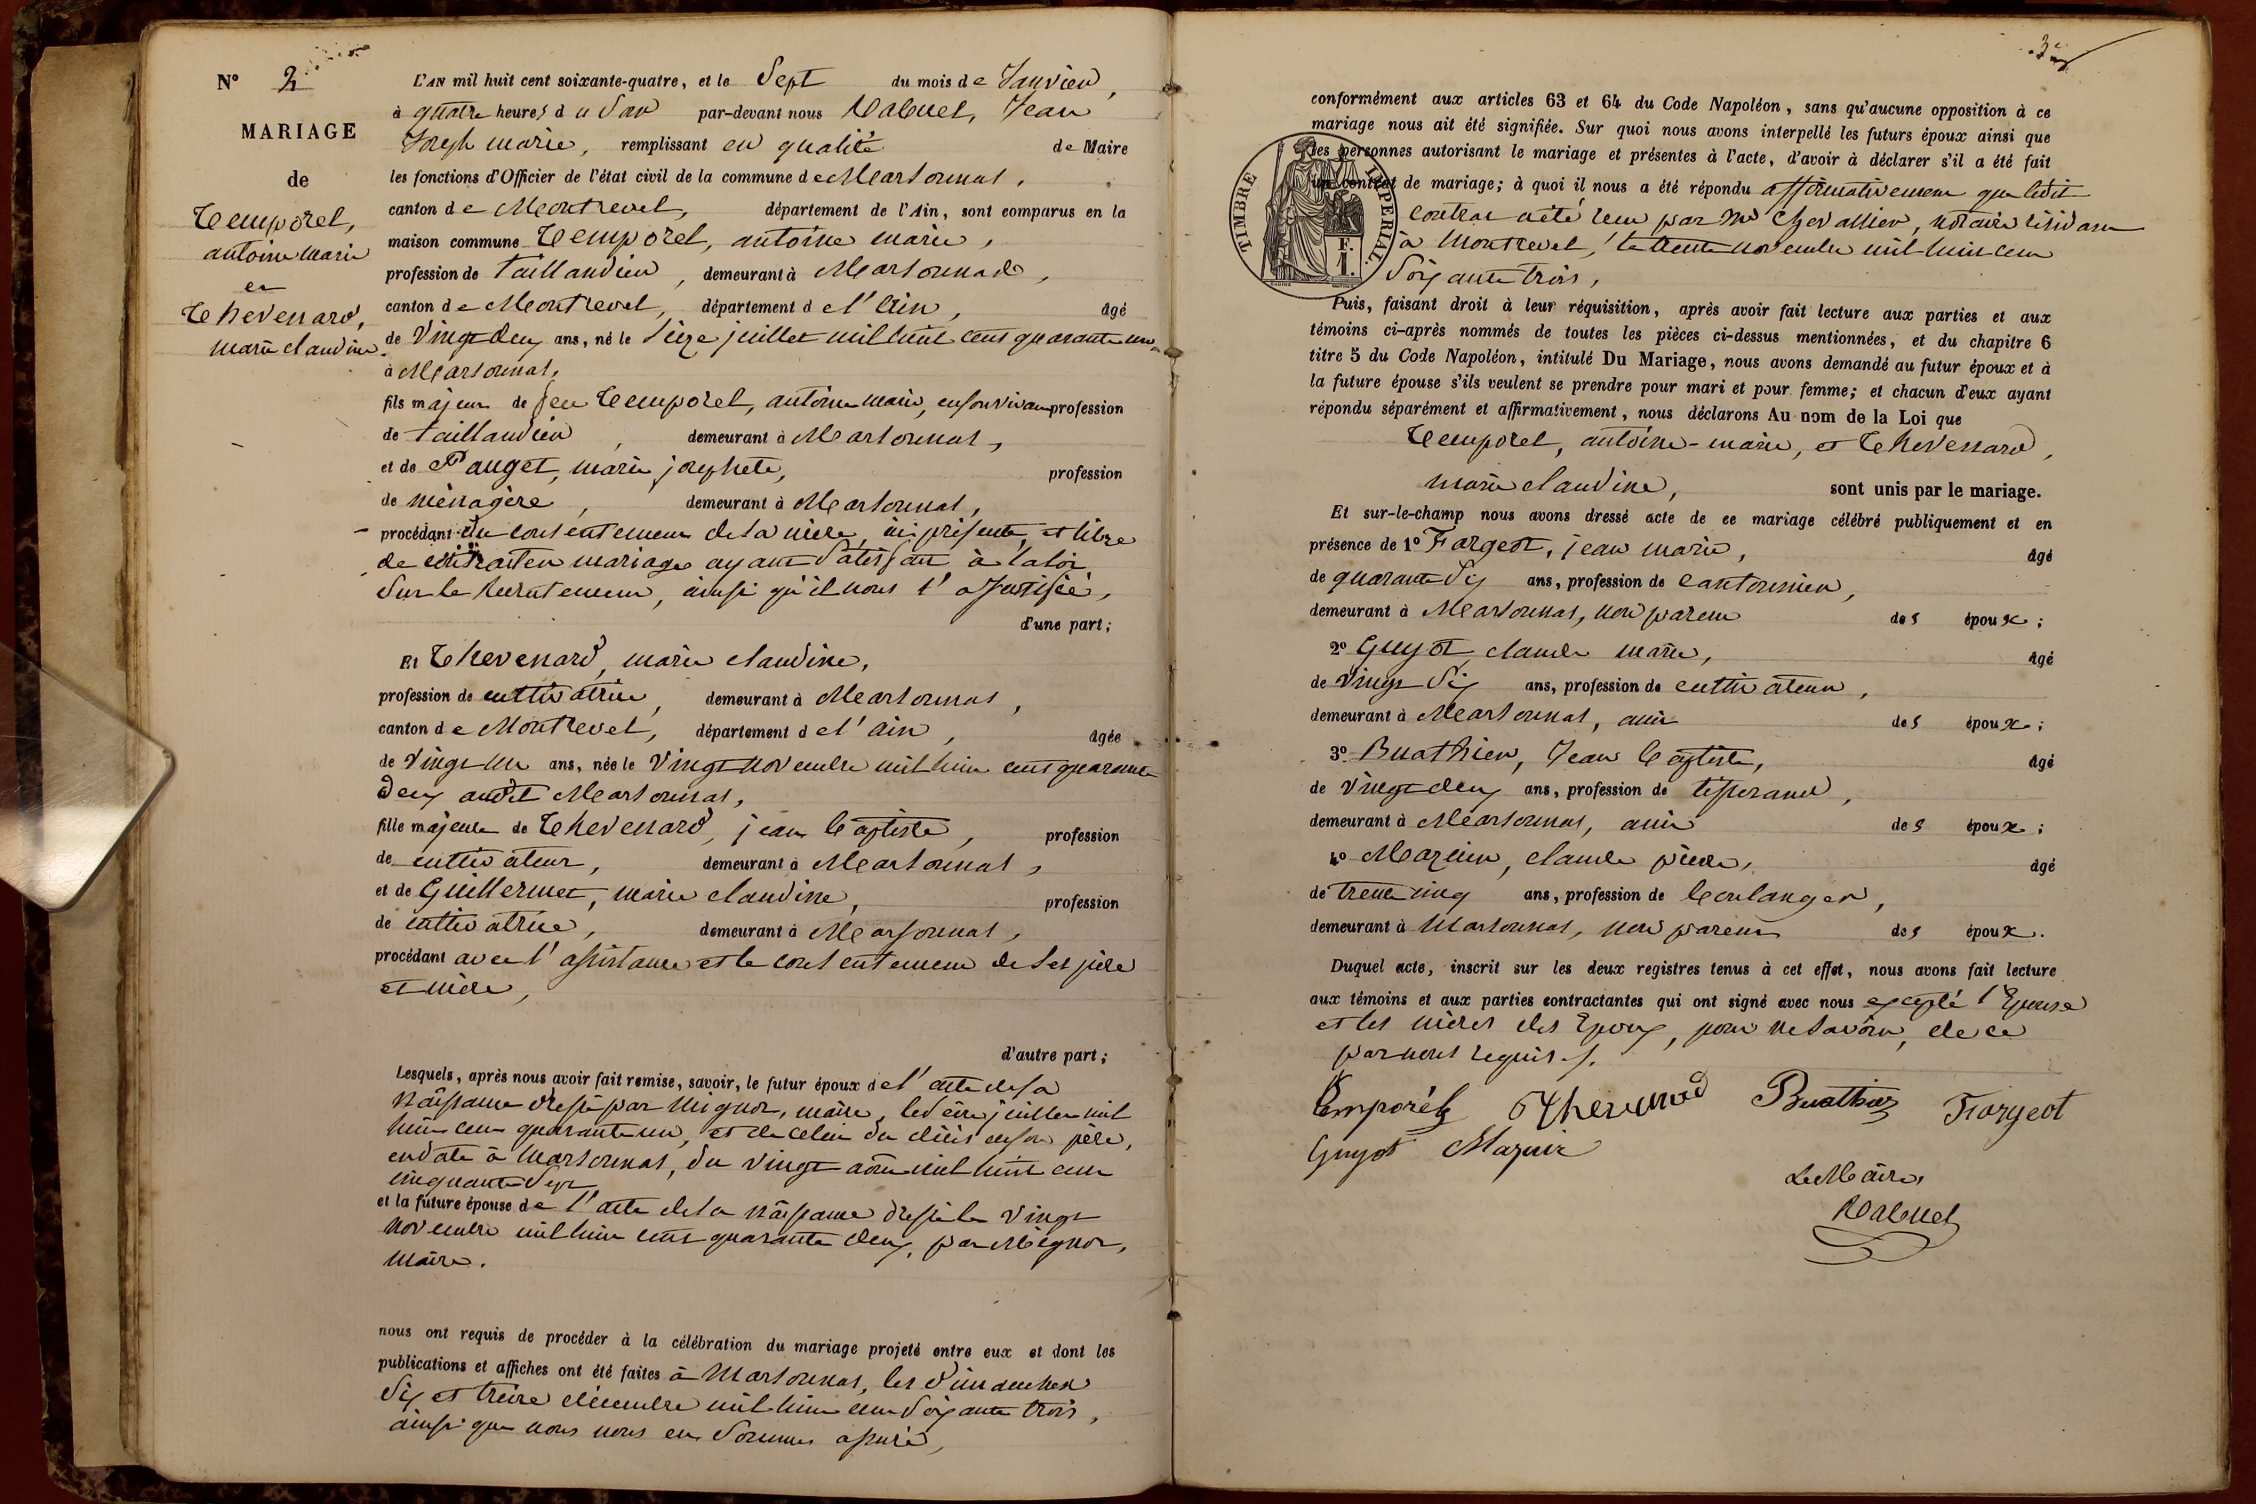 N° 2
MARIAGE
de
Temporel,
antoine marie
et
Thevenard,
marie claudine.
L'AN mil huit cent soixante-quatre, et le Sept du mois de Janvier,
à quatre heures du Soir par-devant nous Jean
Joseph marie, remplissant en qualité de Maire
les fonctions d'Officier de l'état civil de la commune de Marsonnas,
canton de Montrevel, département de l'Ain, sont comparus en la
maison commune Temporel, antoine marie,
profession de taillandier, demeurant à Marsonnas,
canton de Montrevel, département de l'Ain, âgé
de Vingt deux ans, né le Seize juillet mil huit cent quarante un
à Marsonnas,
fils majeur de feu Temporel, antoine marie, en son vivant profession
de taillandier, demeurant à Marsonnas,
et de Pauget, marie josephete, profession
de ménagère, demeurant à Marsonnas,
procédant du consentement de sa mère, ici présente, et libre
de contracter mariage ayant Satisfait à la loi
Sur le Recrutement, ainsi qu'il nous l'a justifié,
d'une part;
Et Thevenard, marie claudine,
profession de cultivatrice, demeurant à Marsonnas,
canton de Montrevel, département de l'ain, âgée
de Vingt un ans, née le Vingt novembre mil huit cent quarante
deux audit Marsonnas,
fille majeure de Thevenard, jean baptiste, profession
de cultivateur, demeurant à Marsonnas,
et de Guillermet, marie claudine, profession
de cultivatrice, demeurant à Marsonnas,
procédant avec l'assistance et le consentement de Ses père
et mère,
d'autre part;
Lesquels, après nous avoir fait remise, savoir, le futur époux de l'acte de sa
naissance dressé par Mignot, maire, le Seize juillet mil
huit cent quarante un, et de celui du décès de son père,
en date à Marsonnas, du vingt août mil huit cent
cinquante Sept
et la future épouse de l'acte de sa naissance dressé le Vingt
novembre mil huit cent quarante deux, par Mignot,
maire.
nous ont requis de procéder à la célébration du mariage projeté entre eux et dont les
publications et affiches ont été faites à Marsonnas, les Dimanches
Six et treize décembre mil huit cent Soixante trois,
ainsi que nous nous en Sommes assuré,
conformément aux articles 63 et 64 du Code Napoléon, sans qu'aucune opposition à ce
mariage nous ait été signifiée. Sur quoi nous avons interpellé les futurs époux ainsi que
les personnes autorisant le mariage et présentes à l'acte, d'avoir à déclarer s'il a été fait
un contrat de mariage; à quoi il nous a été répondu affirmativement que ledit
contrat a été reçu par Me Chevallier, notaire résidant
à Montrevel, le trente novembre mil huit cent
Soixante trois,
TIMBRE IMPERIAL.
F.
1.
Puis, faisant droit à leur réquisition, après avoir fait lecture aux parties et aux
témoins ci-après nommés de toutes les pièces ci-dessus mentionnées, et du chapitre 6
titre 5 du Code Napoléon, intitulé Du Mariage, nous avons demandé au futur époux et à
la future épouse s'ils veulent se prendre pour mari et pour femme; et chacun d'eux ayant
répondu séparément et affirmativement, nous déclarons Au nom de la Loi que
Temporel, antoine-marie, et Thevenard,
marie claudine, sont unis par le mariage.
Et sur-le-champ nous avons dressé acte de ce mariage célébré publiquement et en
présence de 1° Fargeot, jean marie, âgé
de quarante Six ans, profession de cantonnier,
demeurant à Marsonnas, non parent des époux;
2° Guyot, claude marie, âgé
de vingt Six ans, profession de cultivateur,
demeurant à Marsonnas, ami des époux;
3° Buathier, Jean Baptiste, âgé
de Vingt deux ans, profession de tisserand,
demeurant à Marsonnas, ami des époux;
4° Mazuir, claude pierre, âgé
de trente cinq ans, profession de boulanger,
demeurant à Marsonnas, non parent des époux.
Duquel acte, inscrit sur les deux registres tenus à cet effet, nous avons fait lecture
aux témoins et aux parties contractantes qui ont signé avec nous excepté l'Epouse
et les mères des Epoux, pour ne Savoir, de ce
par nous requises.
Temporel Thevenard Buathier Fargeot
Guyot Mazuir
Le Maire,